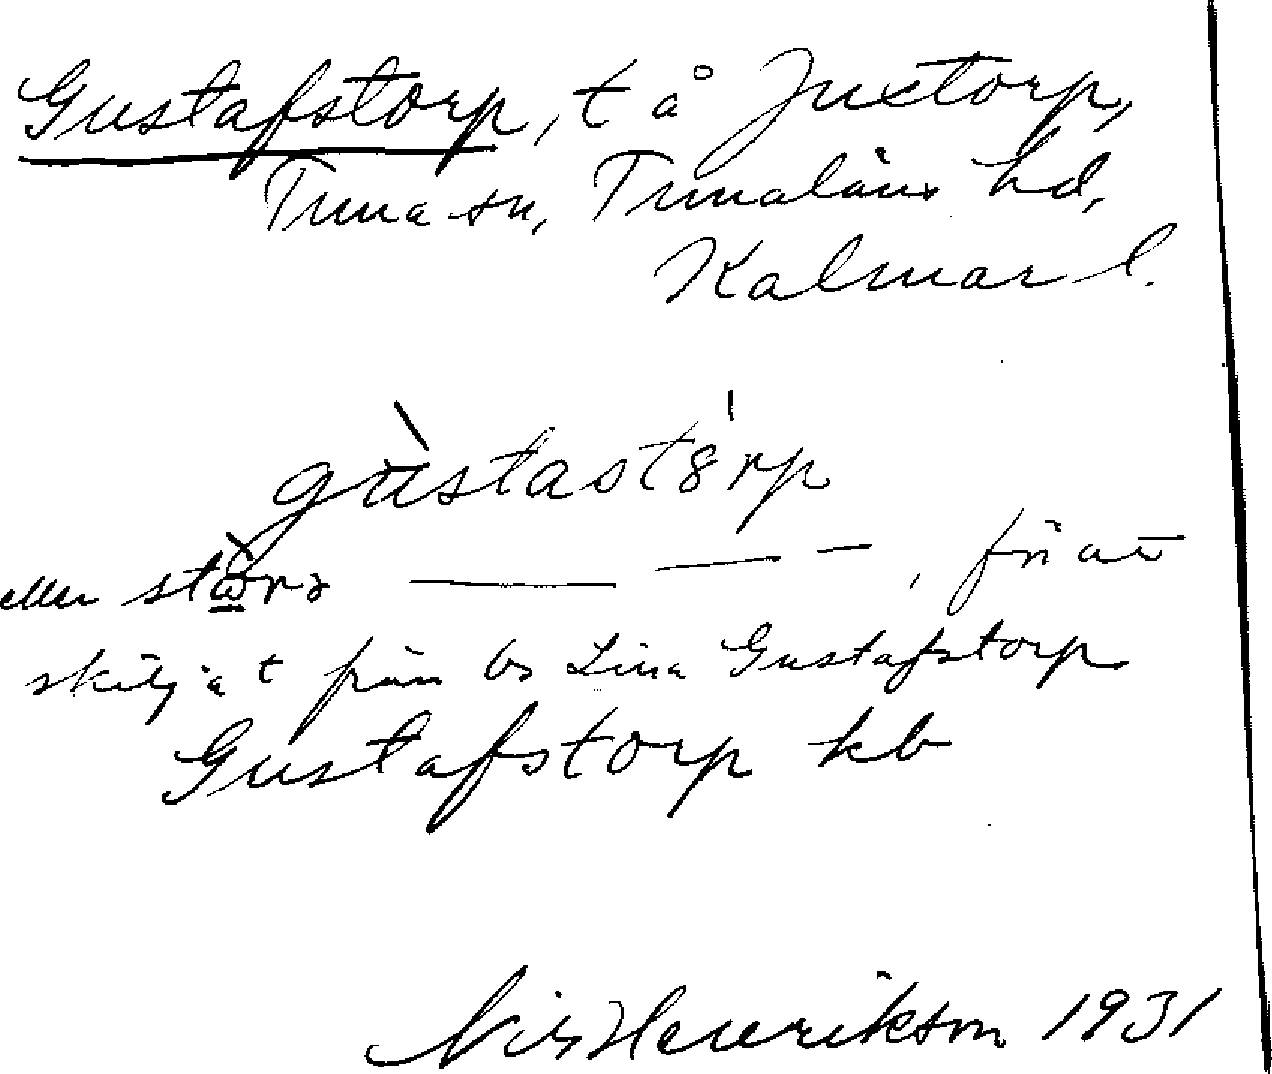 Gustafstorp, t å Juxtorp,
Tuna sn, Tunaläns hd,
Kalmar l.
gùstastórp
eller stora — — —, för att
skilja t från Lina Gustafstorp
Gustafstorp kb
Nils Henrikson 1931